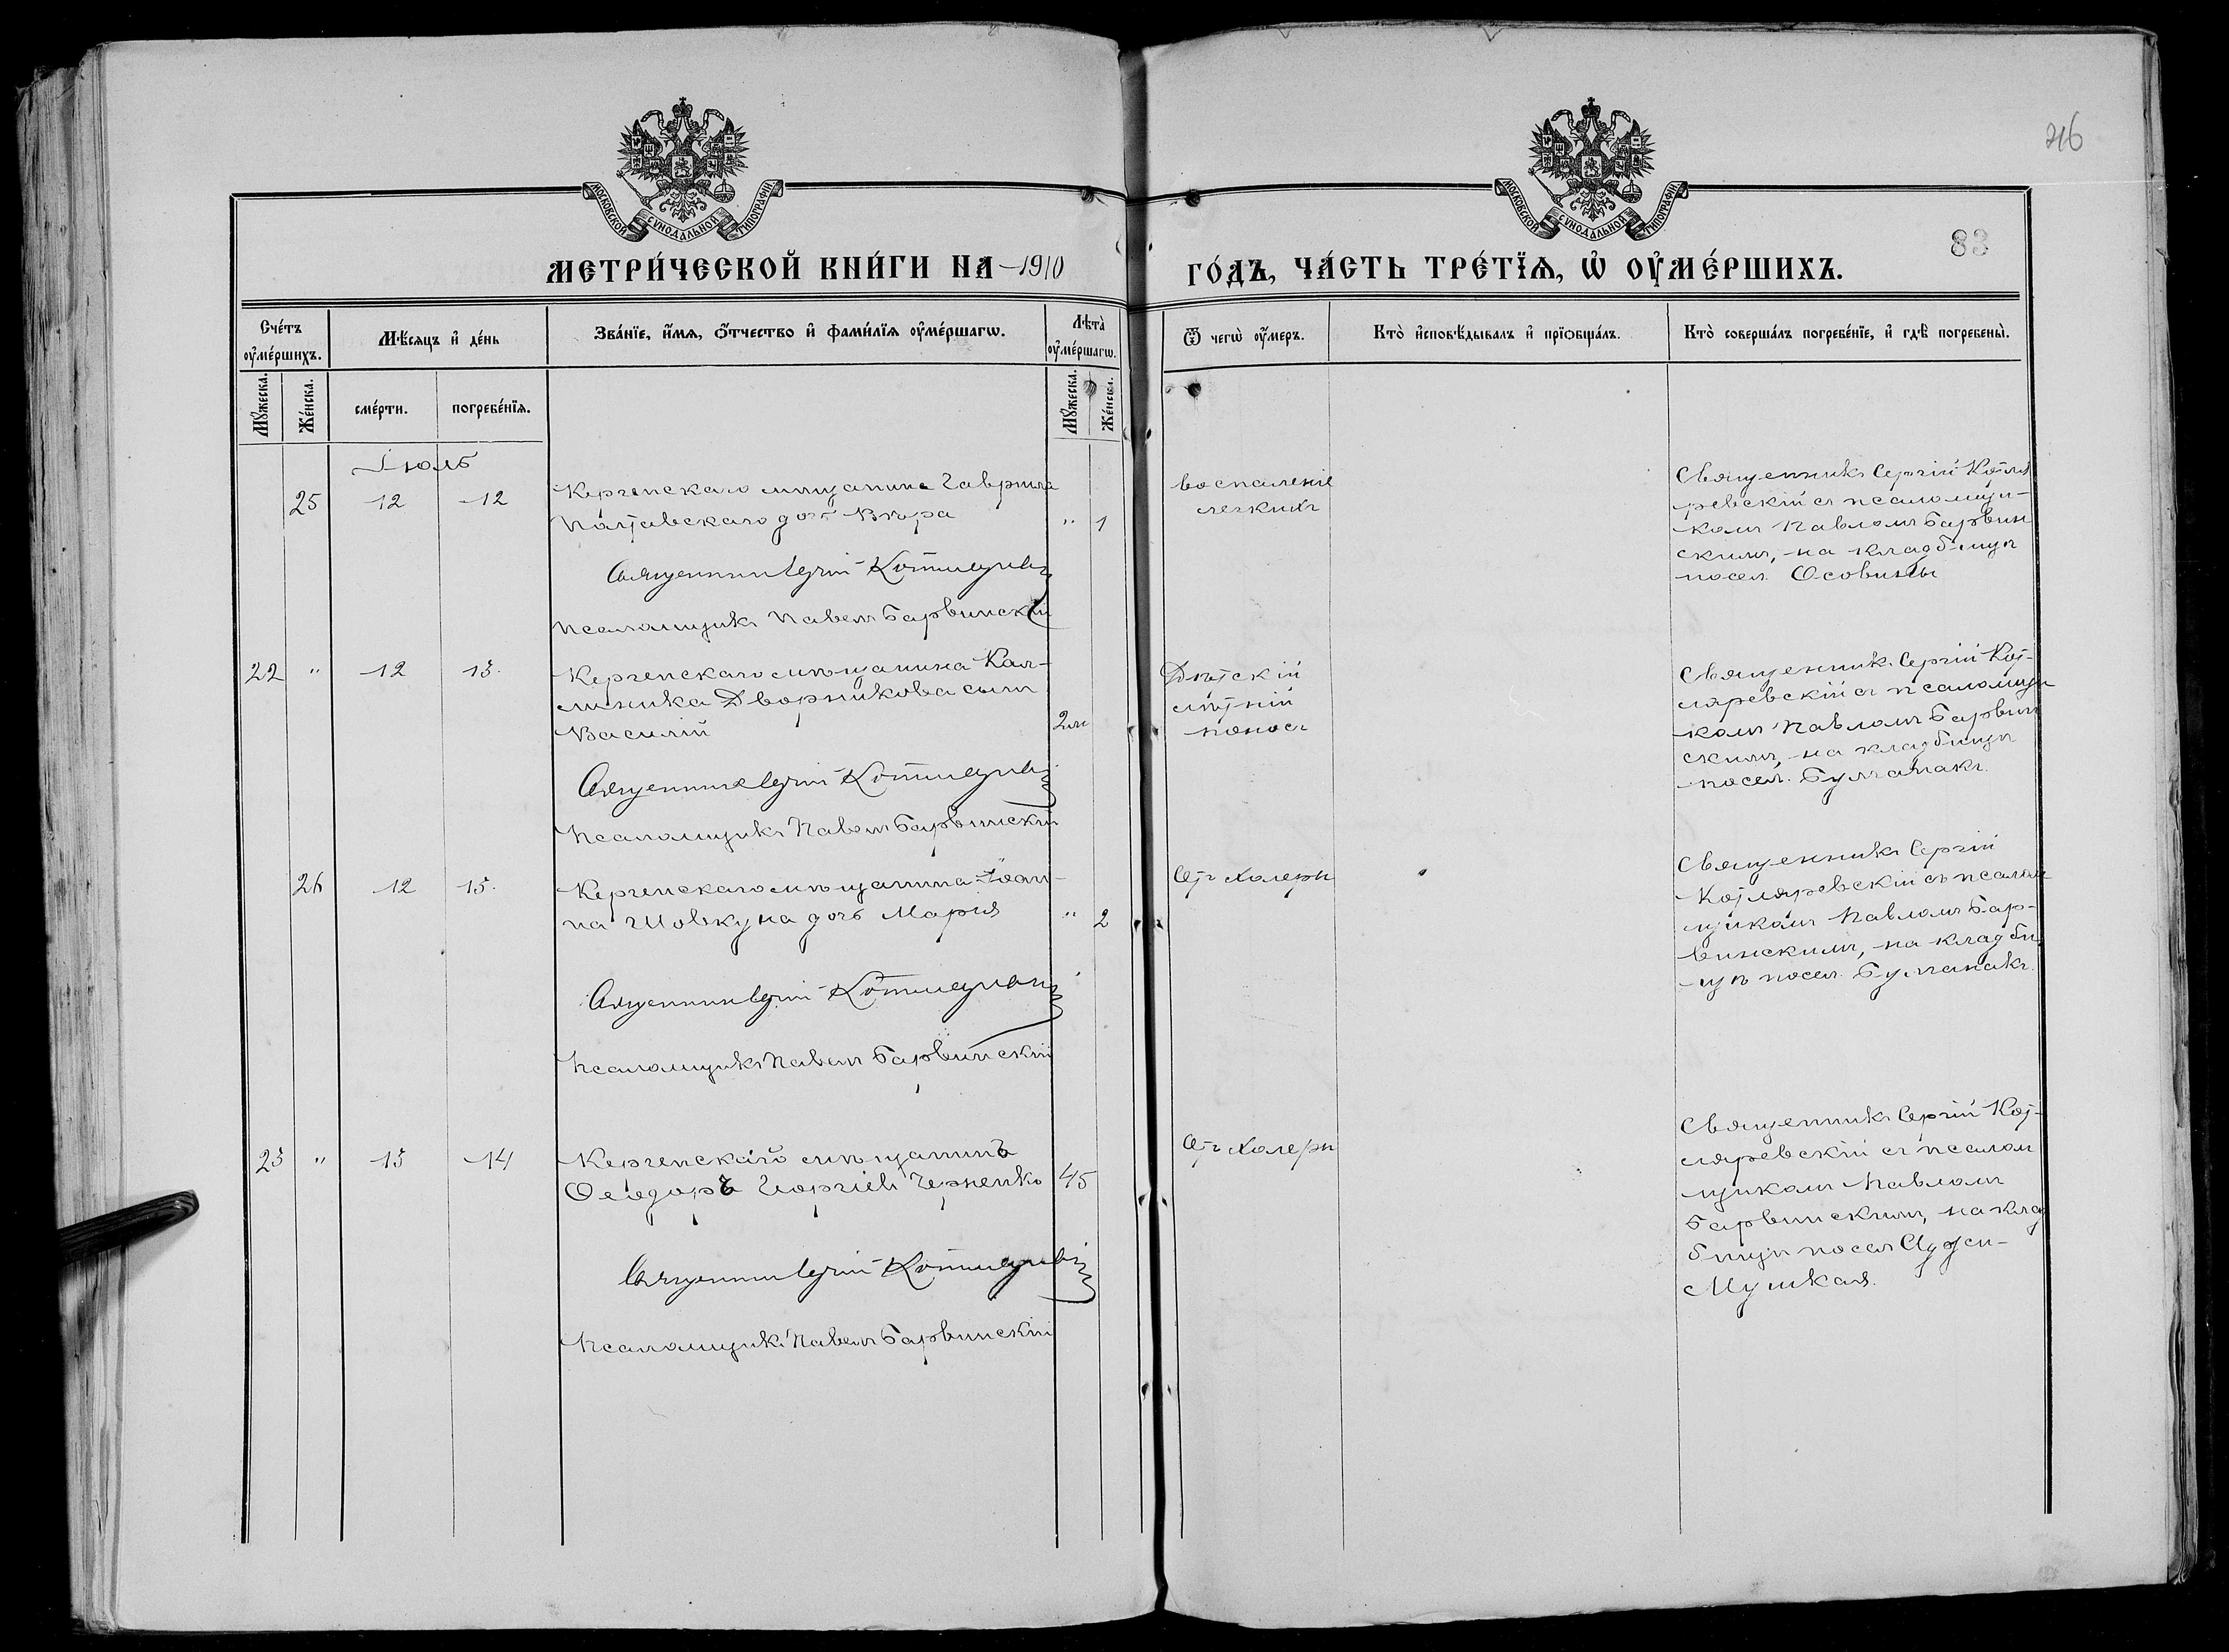 216
83
МОСКОВСКОЙ СѴНОДАЛЬНОЙ ТИПОГРАФИИ
МОСКОВСКОЙ СѴНОДАЛЬНОЙ ТИПОГРАФИИ
МЕТРИ́ЧЕСКОЙ КНИ́ГИ НА 1910
ГО́ДЪ, ЧА́СТЬ ТРЕ́ТЇѦ, Ѡ҆ ОУ҆МЕ́РШИХЪ.
Сче́тъ оу҆ме́ршихъ.
Мѣ́сяцъ и҆ де́нь
Зва́нїе, и҆́мѧ, ѻ҆́тчество и҆ фами́лїѧ оу҆ме́ршагѡ.
Лѣ́та оу҆ме́ршагѡ.
Ѿ чегѡ̀ оу҆́меръ.
Кто̀ и҆сповѣ́дывалъ и҆ прїѡбща́лъ.
Кто̀ соверша́лъ погребе́нїе, и҆ гдѣ̀ погребены̀.
Мꙋ́жеска.
Же́нска.
сме́рти.
погребе́нїѧ.
Мꙋ́жеска.
Же́нска.
Іюль
25 12 12
Керченскаго мѣщанина Гавріила
Полтавскаго дочь Вѣра " 1
Священникъ Сергій Котляревскій
Псаломщикъ Павелъ Барвинскій
воспаленіе
легкихъ
Священникъ Сергій Котля
ревскій съ псаломщи-
комъ Павломъ Барвин
скимъ, на кладбищѣ
посел. Осовины
22 " 12 13.
Керченскаго мѣщанина Кал-
линика Дворникова сынъ
Василій 2 м
Священникъ Сергій Котляревскій
Псаломщикъ Павелъ Барвинскій
Дѣтскій
лѣтній
поносъ
Священникъ Сергій Кот-
ляревскій съ псаломщи
комъ Павломъ Барвин
скимъ, на кладбищѣ
посел. Булганакъ.
26 12 13.
Керченскаго мѣщанина Іоан-
на Шовкуна дочь Марія " 2
Священникъ Сергій Котляревскій
Псаломщикъ Павелъ Барвинскій
Отъ Холеры
Священникъ Сергій
Котляревскій съ псалом
щикомъ Павломъ Бар-
винскимъ, на кладби
щѣ посел. Булганакъ.
23 " 13 14
Керченскаго мѣщанинъ
Ѳеодоръ Георгіев Черненко 45
Священникъ Сергій Котляревскій
Псаломщикъ Павелъ Барвинскій
Отъ Холеры
Священникъ Сергій Кот-
ляревскій съ псалом
щикомъ Павломъ
Барвинскимъ, на клад
бищѣ посел Аджи-
Мушкая.